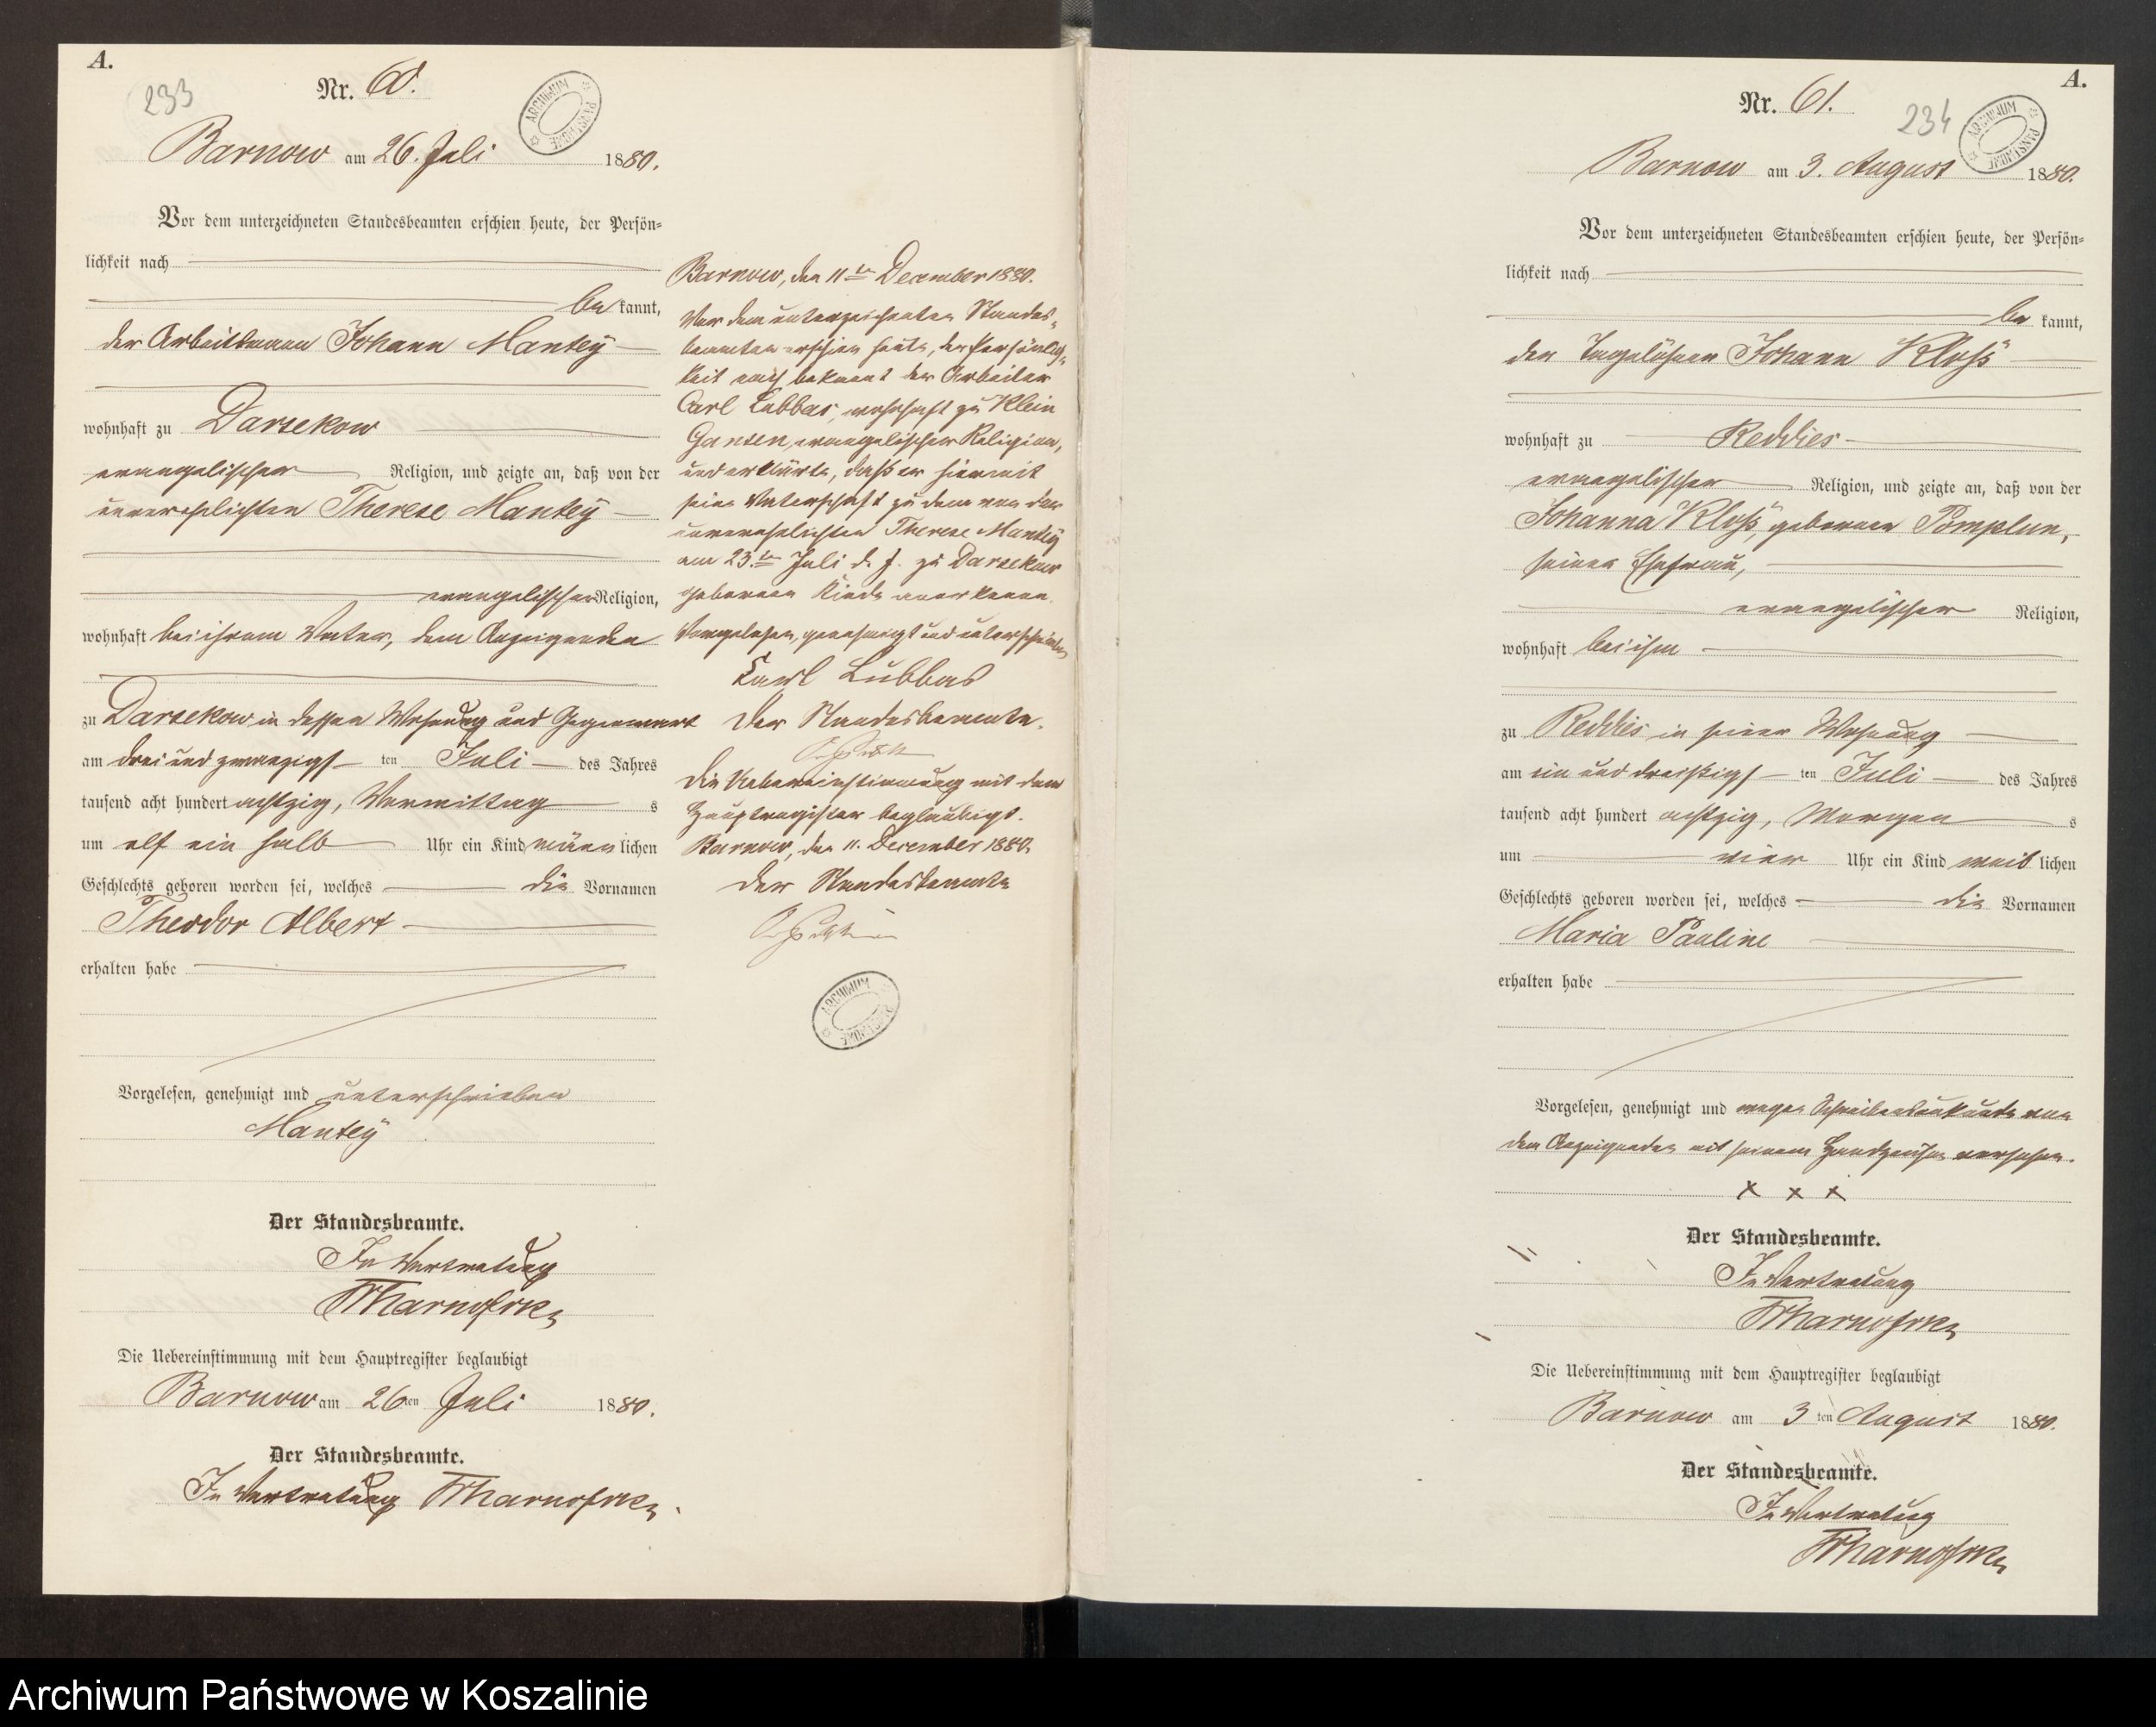 A.
233
Nr. 60.
ARCHIWUM PAŃSTWOWE
Barnow am 26. Juli 1880.
Vor dem unterzeichneten Standesbeamten erschien heute, der Persön=
lichkeit nach
be kannt,
der Arbeitsmann Johann Mantey
wohnhaft zu Darsekow
evangelischer Religion, und zeigte an, daß von der
unverehelichten Therese Mantey
evangelischer Religion,
wohnhaft bei ihrem Vater, dem Anzeigenden
zu Darsekow in dessen Wohnung und Gegenwart
am drei und zwanzigs ten Juli des Jahres
tausend acht hundert achtzig, Vormittag s
um elf ein halb Uhr ein Kind männ lichen
Geschlechts geboren worden sei, welches die Vornamen
Theodor Albert
erhalten habe
Vorgelesen, genehmigt und unterschrieben
Mantey
Der Standesbeamte.
In Vertretung
Die Uebereinstimmung mit dem Hauptregister beglaubigt
Barnow am 26 ten Juli 1880.
Der Standesbeamte.
In Vertretung
Barnow, den 11ten December 1880.
Vor dem unterzeichneten Standes=
beamten erschien heute, der Persönlich=
keit nach bekannt der Arbeiter
Carl Lubbas, wohnhaft zu Klein
Gansen, evangelischer Religion,
und erklärte, daß er hiermit
seine Vaterschaft zu dem von der
unverehelichten Therese Mantey
am 23ten Juli d. J. zu Darsekow
geborenen Kinde anerkenne.
Vorgelesen, genehmigt und unterschrieben
Karl Lubbas
Der Standesbeamte.
Die Uebereinstimmung mit dem
Hauptregister beglaubigt.
Barnow, den 11. December 1880.
Der Standesbeamte
ARCHIWUM PAŃSTWOWE
A.
Nr. 61.
234
ARCHIWUM PAŃSTWOWE
Barnow am 3. August 1880.
Vor dem unterzeichneten Standesbeamten erschien heute, der Persön=
lichkeit nach
be kannt,
der Tagelöhner Johann Kloß
wohnhaft zu Reddies
evangelischer Religion, und zeigte an, daß von der
Johanna Kloß, geborenen Pomplun,
seiner Ehefrau,
evangelischer Religion,
wohnhaft bei ihm
zu Reddies in seiner Wohnung
am ein und dreißigs ten Juli des Jahres
tausend acht hundert achtzig, Morgen s
um vier Uhr ein Kind weib lichen
Geschlechts geboren worden sei, welches die Vornamen
Maria Pauline
erhalten habe
Vorgelesen, genehmigt und wegen Schreibensunkunde von
dem Anzeigenden mit seinem Handzeichen versehen.
x x x
Der Standesbeamte.
In Vertretung
Die Uebereinstimmung mit dem Hauptregister beglaubigt
Barnow am 3 ten August 1880.
Der Standesbeamte.
In Vertretung
Archiwum Państwowe w Koszalinie